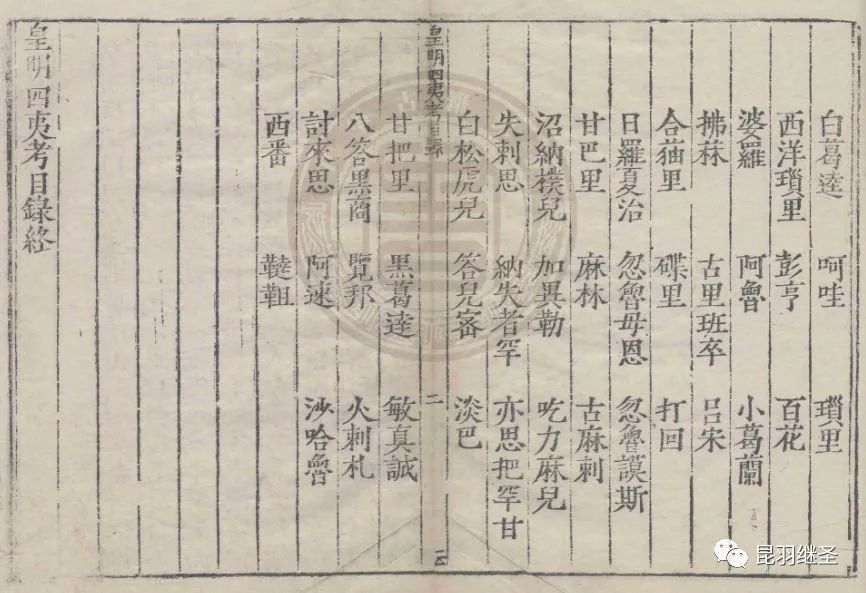 白葛達 呵哇 瑣里
西洋瑣里 彭亨 百花
婆羅 阿魯 小葛蘭
拂菻 古里班卒 呂宋
合猫里 碟里 打回
日羅夏治 忽魯母恩 忽魯謨斯
甘巴里 麻林 古麻剌
沼納樸兒 加異勒 吃力麻兒
失剌思 納失者罕 亦思把罕甘
白松虎兒 答兒宻 淡巴
皇明四夷考目錄
二
甘把里 黑葛達 敏真誠
八答黑商 覽邦 火剌札
討來思 阿速 沙哈魯
西番 韃靼
皇明四夷考目錄終
昆羽继圣